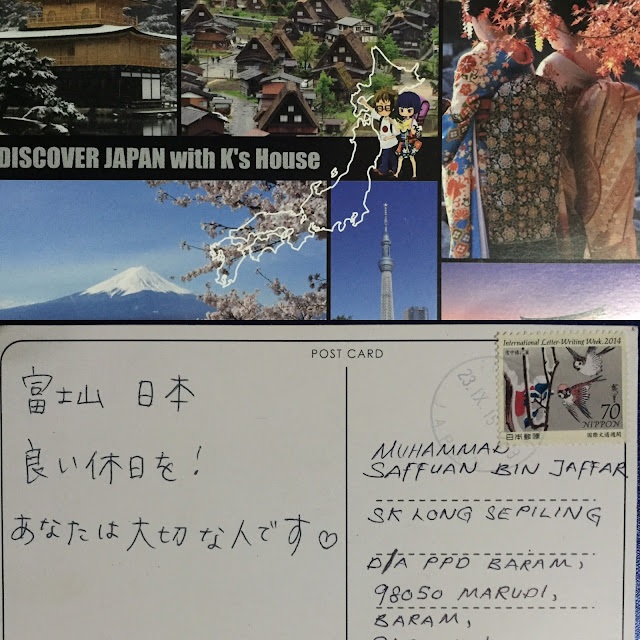 DISCOVER JAPAN with K's House
POST CARD
富士山 日本
良い休日を!
あなたは大切な人です♡
International Letter-Writing Week, 2014
70
NIPPON
日本郵便
23.IX.15
MUHAMMAD
SAFFUAN BIN JAFFAR
SK LONG SEPILING
D/A PPD BARAM,
98050 MARUDI,
BARAM,